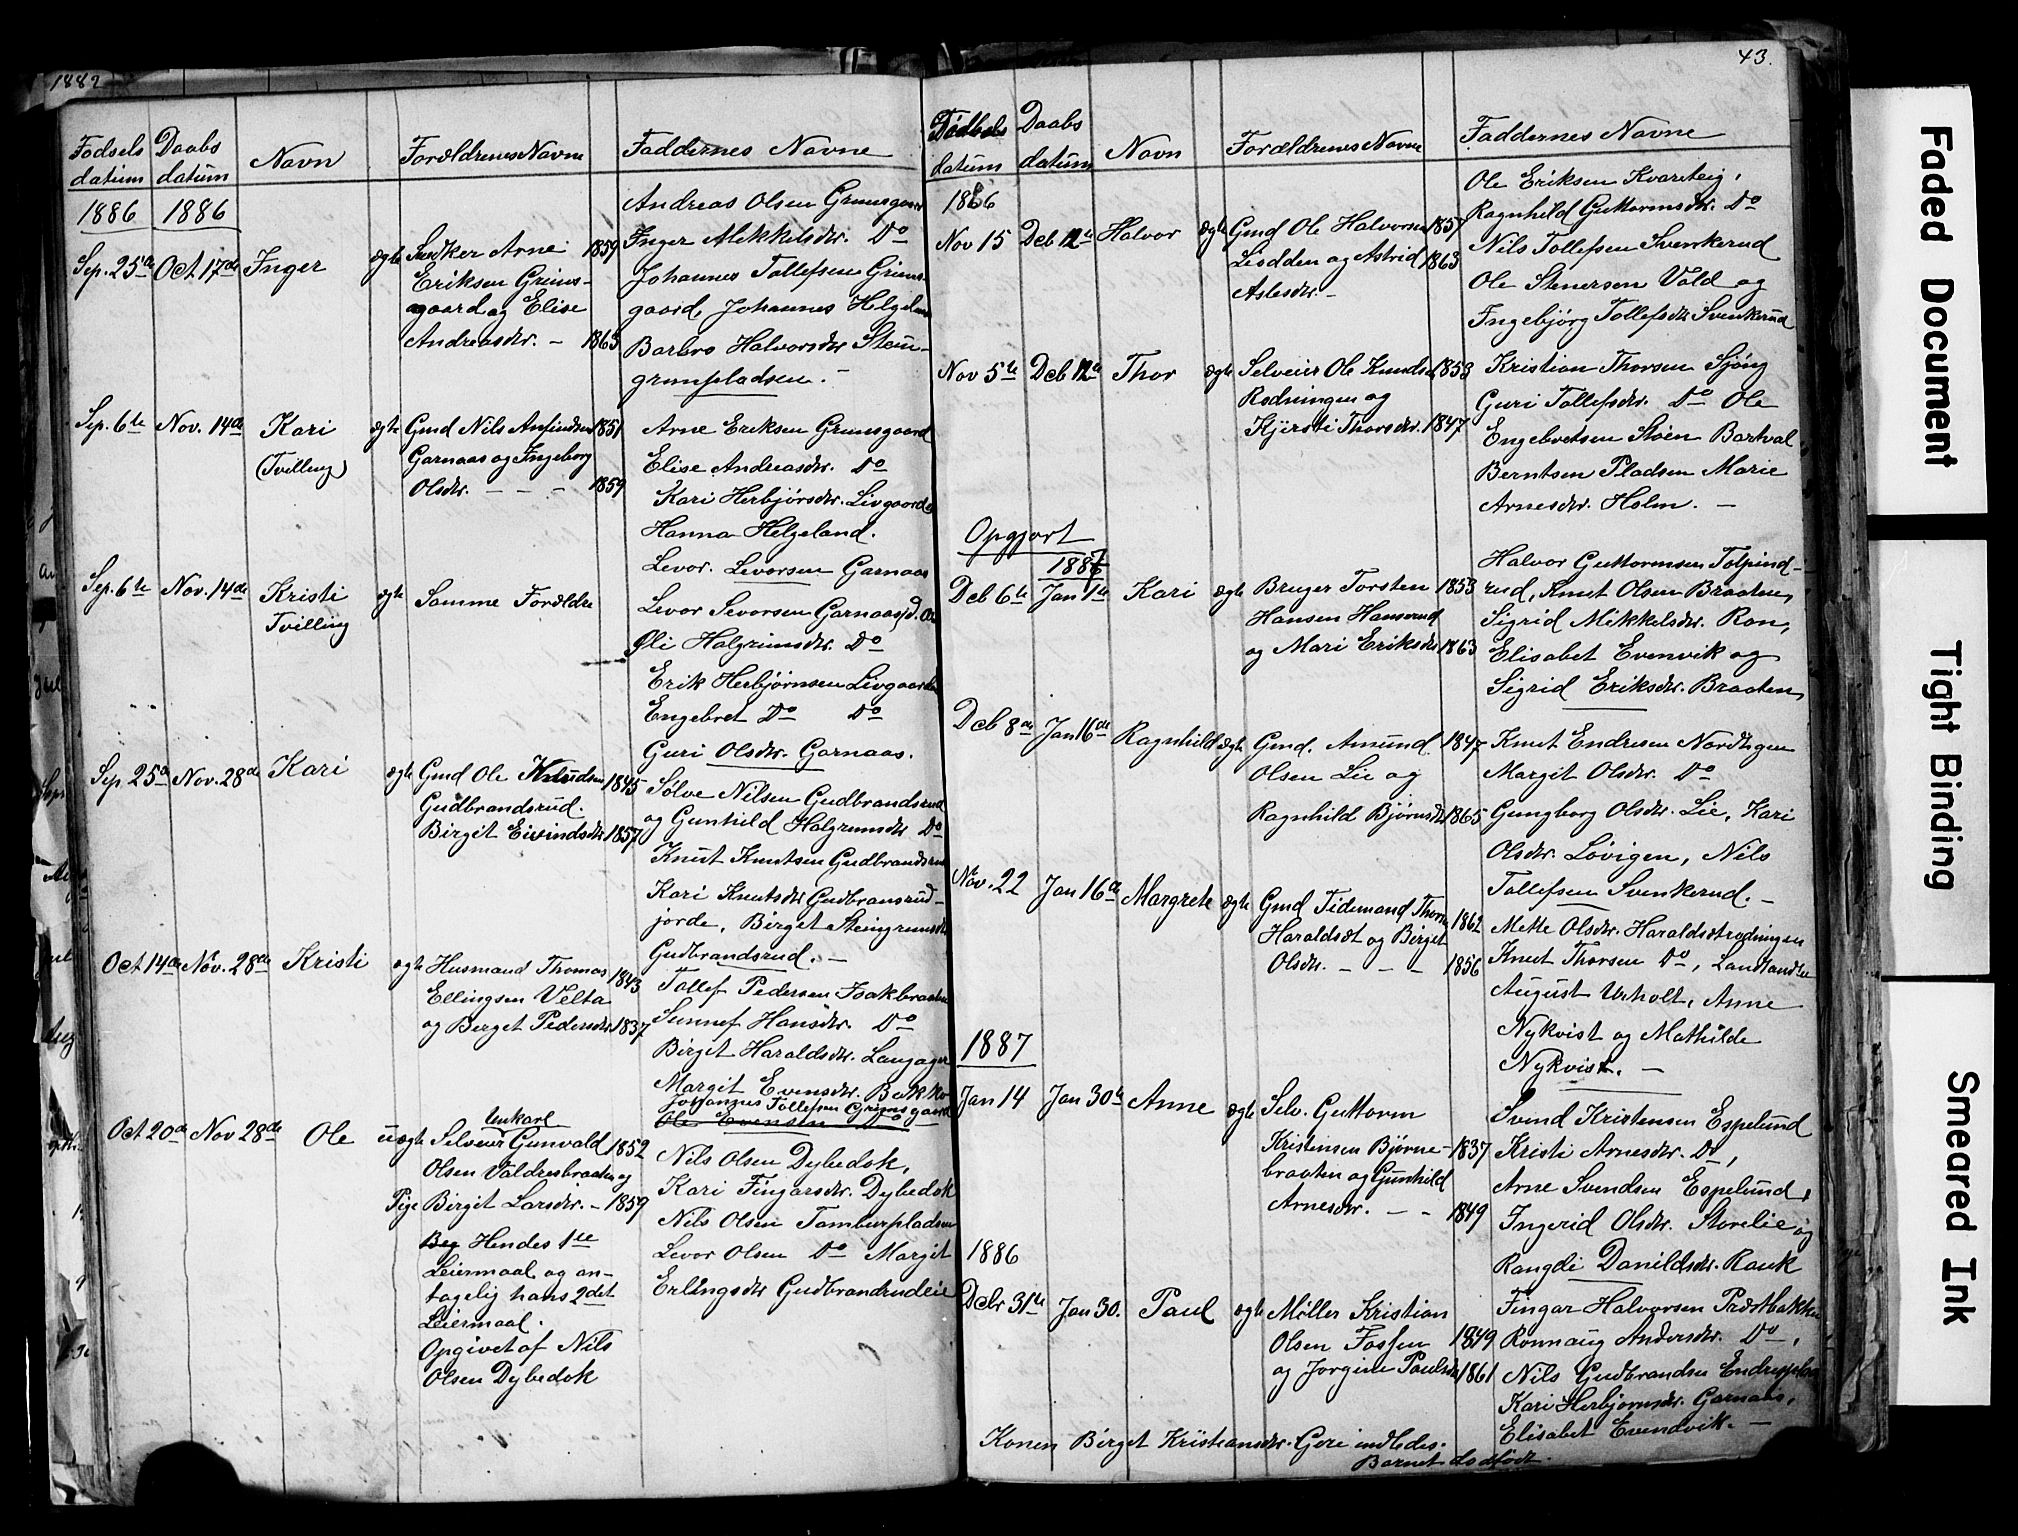 1882
Fodsels datum
Daabs datum
Navn
Forældrenes Navne
Faddernes Navne
1886 1886
Sep. 25de Oct 17de Inger ægte
Snedker Arne 1859
Eriksen Grims-
gaard og Elise
Andreasdtr. - 1863
Andreas Olsen Grimsgaard
Inger Mikkelsdtr. Do
Johannes Tollefsen Grims-
gaard, Johannes Helgeland
Barbro Halvorsdtr Stein-
grimspladsen. -
Sep. 6te Nov. 14de Kari ægte
(Tvilling)
Gmd Nils Anfindsen 1851
Garnaas og Ingeborg
Olsdtr. - - - 1859
Arne Eriksen Grimsgaard
Elise Andreasdtr. Do
Kari Herbjørsdtr. Livgaarde
Hanna Helgeland.
Levor. Levorsen Garnaas
Sep. 6te Nov. 14de Kristi ægte
Tvilling
Samme Forældre
Levor Sevorsen Garnaas
Øli Halgrimsdtr. Do
Erik Herbjørnsen Livgaarde
Engebret Do Do
Guri Olsdtr. Garnaas.
Sep. 25de Nov. 28de Kari ægte
Gmd Ole Knudsen 1845
Gudbrandsrud.
Birgit Eivindsdtr 1857
Sølve Nilsen Gudbrandsrud
og Gunhild Halgrimsdtr Do
Knut Knutsen Gudbrandsrud
Kari Knutsdtr Gudbransrud-
jorde, Birget Steingrimsdtr
Gudbrandsrud. -
Oct 14de Nov. 28de Kristi ægte
Husmand Thomas 1843
Ellingsen Velta
og Berget Pedersdtr 1837
Tollef Pedersen Isakbraaten
Sunnef Hansdtr. Do
Birget Haraldsdtr. Langager
Margit Evensdtr. Bakko
Johannes Tollefsen Grimsgaard
Ole Evensen
Oct 20de Nov 28de Ole uægte
Unkarl
Selveier Gunvald 1852
Olsen Valdresbraaten og
Pige Birgit Larsdtr. - 1859
Beg Hendes 1ste
Leiermaal og an-
tagelig hans 2det
Leiermaal.
Opgivet af Nils
Olsen Dybedok
Nils Olsen Dybedok,
Kari Fingarsdtr. Dybedok
Nils Olsen Tamburpladsen
Levor Olsen Do Margit
Erlingsdtr Gudbrandrudeie
43.
Fødsels datum
Daabs datum
Navn
Forældrenes Navne
Faddernes Navne
1886
Nov 15 Dcb 12te Halvor ægte
Gmd Ole Halvorsen 1857
Liodden og Astrid 1863
Aslesdtr. -
Ole Eriksen Kvarteig,
Ragnhild Guttormsdtr. Do
Nils Tollefsen Svenkerud
Ole Stenersen Vold og
Ingebjørg Tollefsdtr Svenkerud
Nov 5te Dcb 12te Thor ægte
Selveier Ole Knudsen 1853
Rodningen og
Kjersti Thorsdtr. 1847
Kristian Thorsen Sjöng
Guri Tollefsdtr. Do Ole
Engebretsen Støen Bartval
Berntsen Pladsen Marie
Arnesdtr. Holm. -
Opgjort
1887
Dcb 6te Jan 1te Kari ægte
Bruger Torsten 1853
Hansen Hansrud
og Mari Eriksdtr 1863
Halvor Guttormsen Tolpind-
rud, Knut Olsen Braaten,
Sigrid Mikkelsdtr. Ron,
Elisabet Evenvik og
Sigrid Eriksdtr. Braaten,
Dcb 8de Jan 16de Ragnhild ægte
Gmd. Amund 1847
Olsen Lie og
Ragnhild Bjørnsdtr 1865
Knut Endresen Nordhgen
Margit Olsdtr. Do
Gungborg Olsdtr. Lie, Kari
Olsdtr. Løvigen, Nils
Tollefsen Svenkerud. -
Nov. 22 Jan 16de Margrete ægte
Gmd Tidemand Thorsen 1862
Haraldsæt og Birget
Olsdtr. - - - 1856
Mette Olsdtr. Haraldsætrodningen
Knut Thorsen Do, Landhandler
August Urholt, Anne
Nykvist og Mathilde
Nykvist. -
1887
Jan 14 Jan 30te Anne ægte
Selv. Guttorm
Kristensen Bjørne- 1837
braaten og Gunhild
Arnesdtr. - - 1849
Svend Kristensen Espelund
Kristi Arnesdtr. Do,
Arne Svendsen Espelund,
Ingerid Olsdtr. Storelie og
Rangdi Danildsdtr. Rauk
1886
Dcbr 31te Jan 30. Paul ægte
Møller Kristian
Olsen Fossen 1849
og Jorgine Paulsdtr 1861
Fingar Halvorsen Præstbakken
Ronnaug Andersdtr. Do,
Nils Gudbrandsen Endrepladsen
Kari Herbjørnsdtr. Garnaas,
Elisabet Evendvik. -
Konen Birget Kristiansdtr. Gere indledes.
Barnet dødfødt.
Faded Document
Tight Binding
Smeared Ink